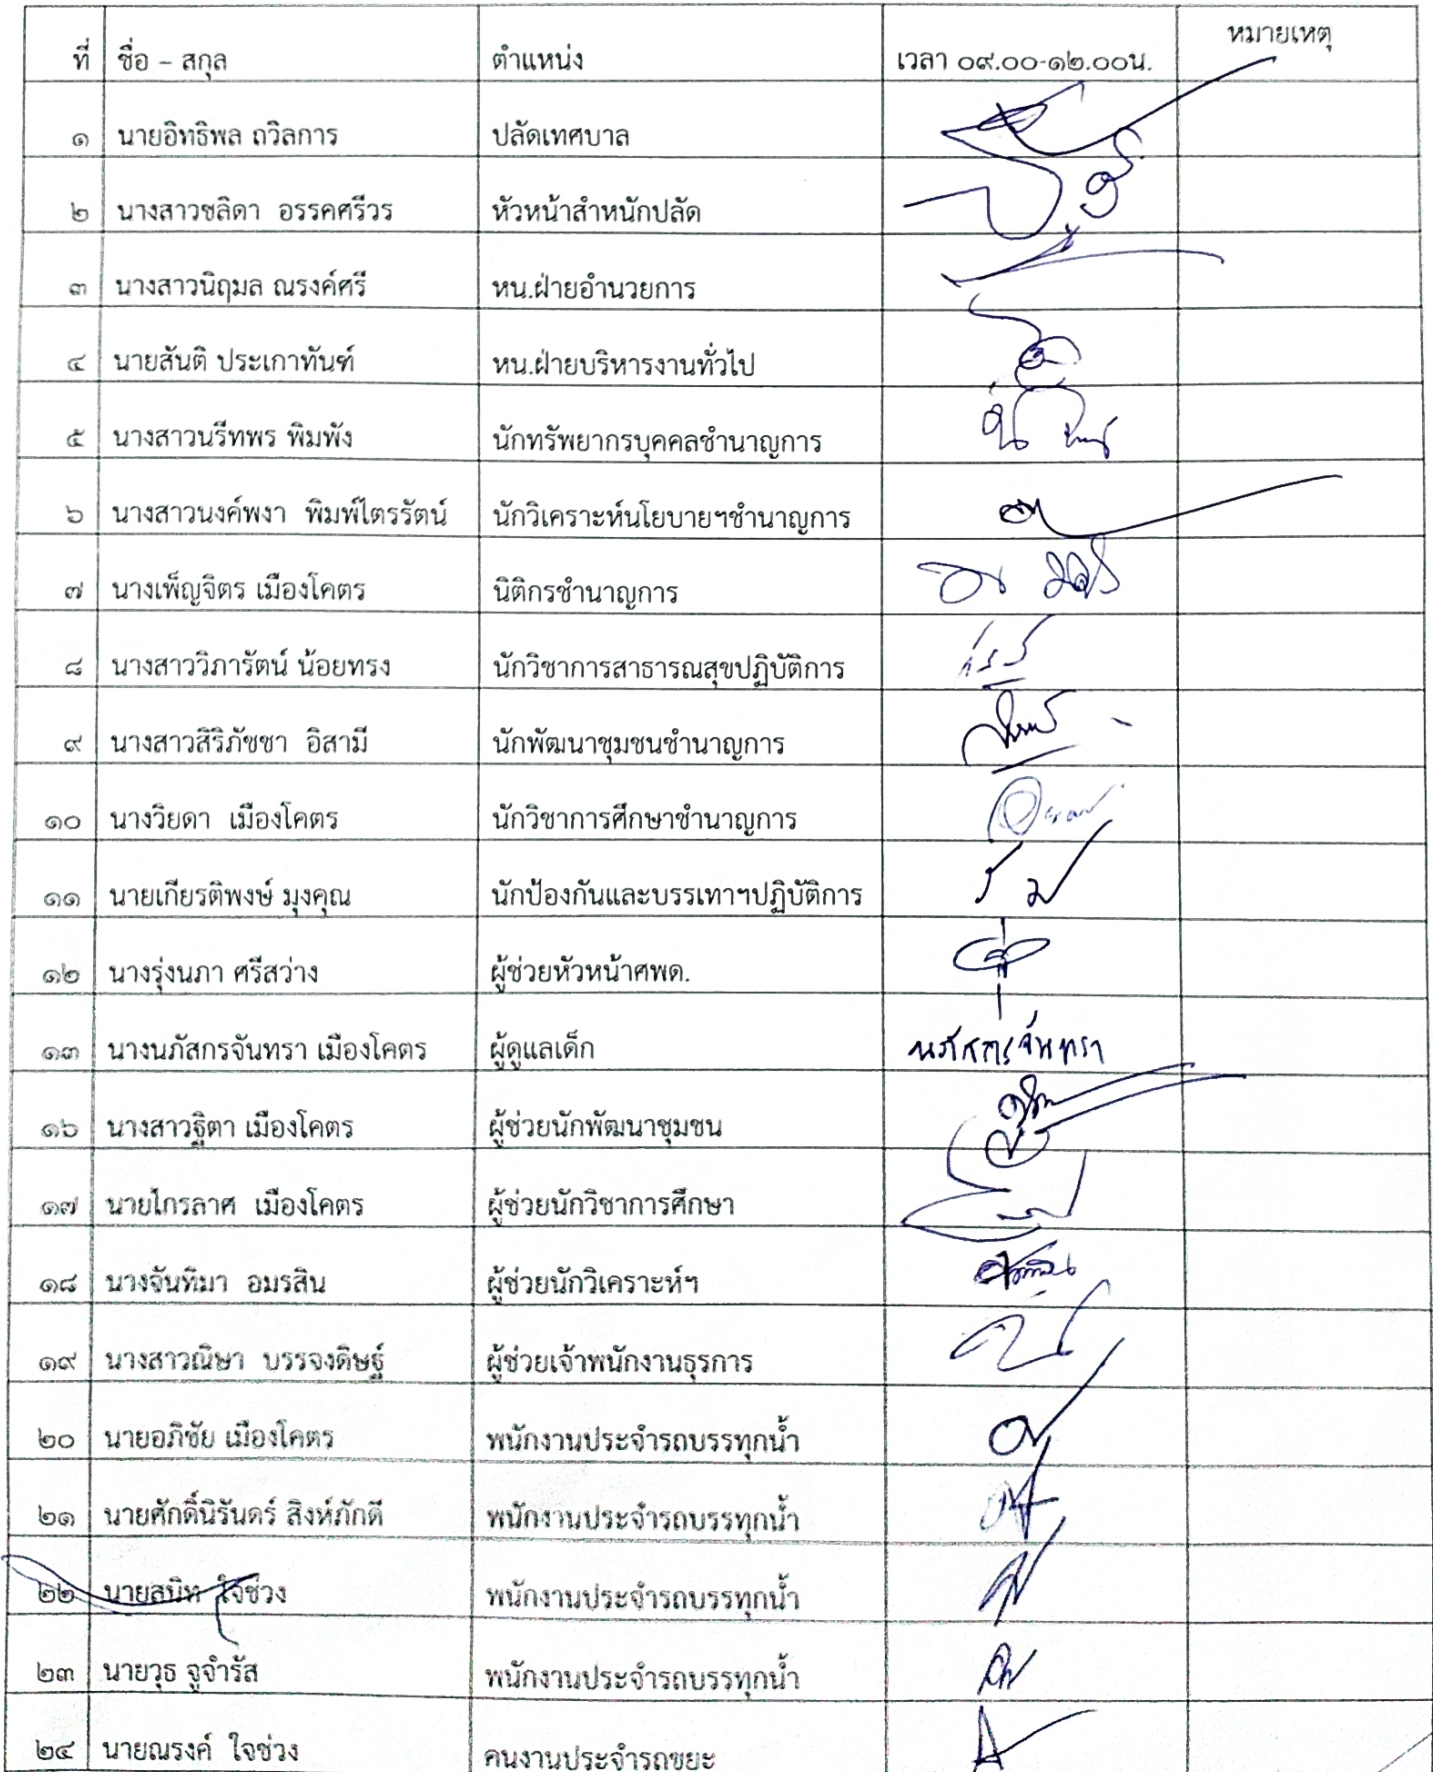 ที่ ชื่อ – สกุล ตำแหน่ง เวลา ๐๙.๐๐-๑๒.๐๐น. หมายเหตุ
๑ นายอิทธิพล ถวิลการ ปลัดเทศบาล
๒ นางสาวชลิดา อรรคศรีวร หัวหน้าสำหนักปลัด
๓ นางสาวนิฤมล ณรงค์ศรี หน.ฝ่ายอำนวยการ
๔ นายสันติ ประเกาทันฑ์ หน.ฝ่ายบริหารงานทั่วไป
๕ นางสาวนรีทพร พิมพัง นักทรัพยากรบุคคลชำนาญการ
๖ นางสาวนงค์พงา พิมพ์ไตรรัตน์ นักวิเคราะห์นโยบายฯชำนาญการ
๗ นางเพ็ญจิตร เมืองโคตร นิติกรชำนาญการ
๘ นางสาววิภารัตน์ น้อยทรง นักวิชาการสาธารณสุขปฏิบัติการ
๙ นางสาวสิริภัชชา อิสามี นักพัฒนาชุมชนชำนาญการ
๑๐ นางวิยดา เมืองโคตร นักวิชาการศึกษาชำนาญการ
๑๑ นายเกียรติพงษ์ มุงคุณ นักป้องกันและบรรเทาฯปฏิบัติการ
๑๒ นางรุ่งนภา ศรีสว่าง ผู้ช่วยหัวหน้าศพด.
๑๓ นางนภัสกรจันทรา เมืองโคตร ผู้ดูแลเด็ก นภัสกรจันทรา
๑๖ นางสาวฐิตา เมืองโคตร ผู้ช่วยนักพัฒนาชุมชน
๑๗ นายไกรลาศ เมืองโคตร ผู้ช่วยนักวิชาการศึกษา
๑๘ นางจันทิมา อมรสิน ผู้ช่วยนักวิเคราะห์ฯ
๑๙ นางสาวณิษา บรรจงดิษฐ์ ผู้ช่วยเจ้าพนักงานธุรการ
๒๐ นายอภิชัย เมืองโคตร พนักงานประจำรถบรรทุกน้ำ
๒๑ นายศักดิ์นิรันดร์ สิงห์ภักดี พนักงานประจำรถบรรทุกน้ำ
๒๒ นายสนิท ใจช่วง พนักงานประจำรถบรรทุกน้ำ
๒๓ นายวุธ จูจำรัส พนักงานประจำรถบรรทุกน้ำ
๒๔ นายณรงค์ ใจช่วง คนงานประจำรถขยะ